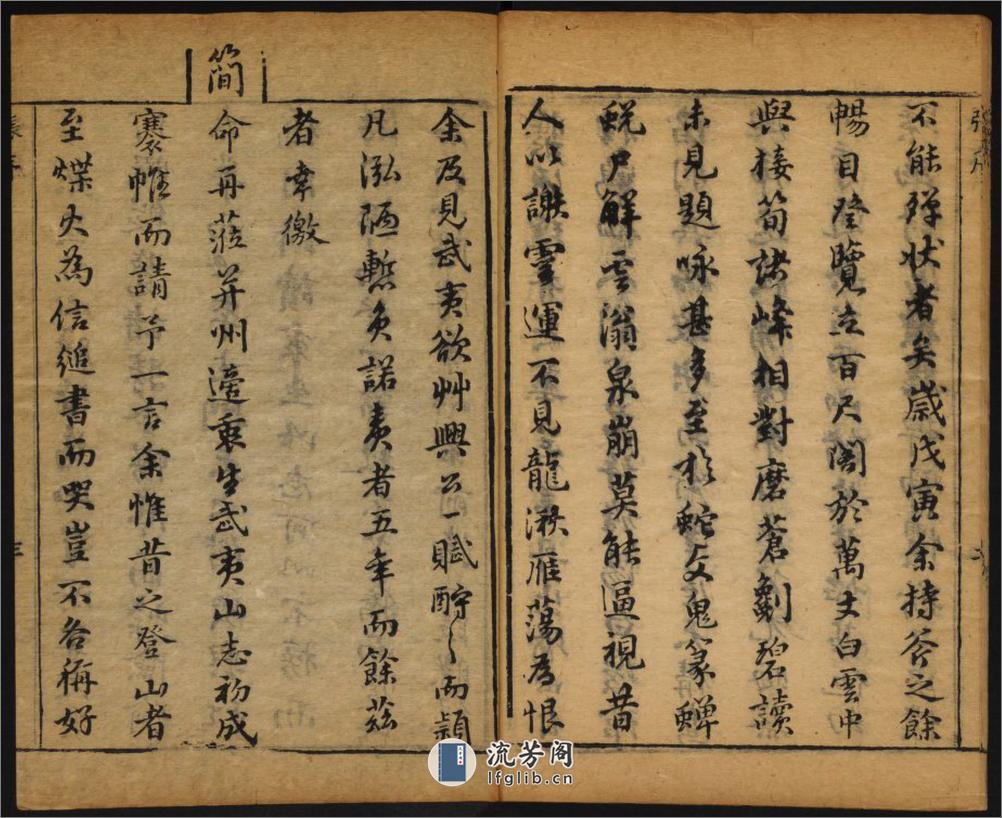 不能殫狀者矣歲戊寅余持斧之餘
暢目登覽立百尺閣於萬丈白雲中
與接笋諸峰相對磨蒼劖碧讀
未見題咏甚多至於蛇文鬼篆蟬
蛻尸解雲滃泉崩莫能逼視昔
人以謝靈運不見龍湫雁蕩為恨
余及見武夷欲艸興公一賦酧之而穎
凡泓陋慙負諾責者五年而餘茲
者幸徼
簡
命再蒞并州適衷生武夷山志初成
褰帷而請予一言余惟昔之登山者
至爃火為信縋書而哭豈不咎稱好
張序
流芳阁
lfglib.cn